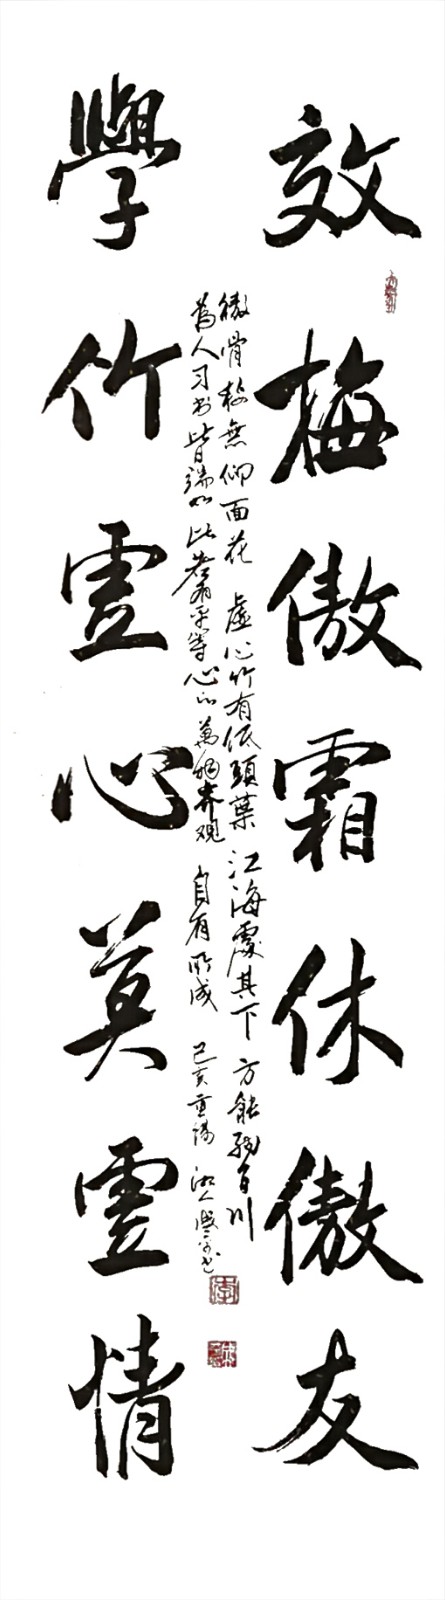 效梅傲霜休傲友
傲骨梅無仰面花 虛心竹有低頭葉 江海處其下 方能納百川
為人习书皆端如此 平等心 萬物齊觀 自有所成 己亥重陽 湘人 书
學竹虚心莫虚情